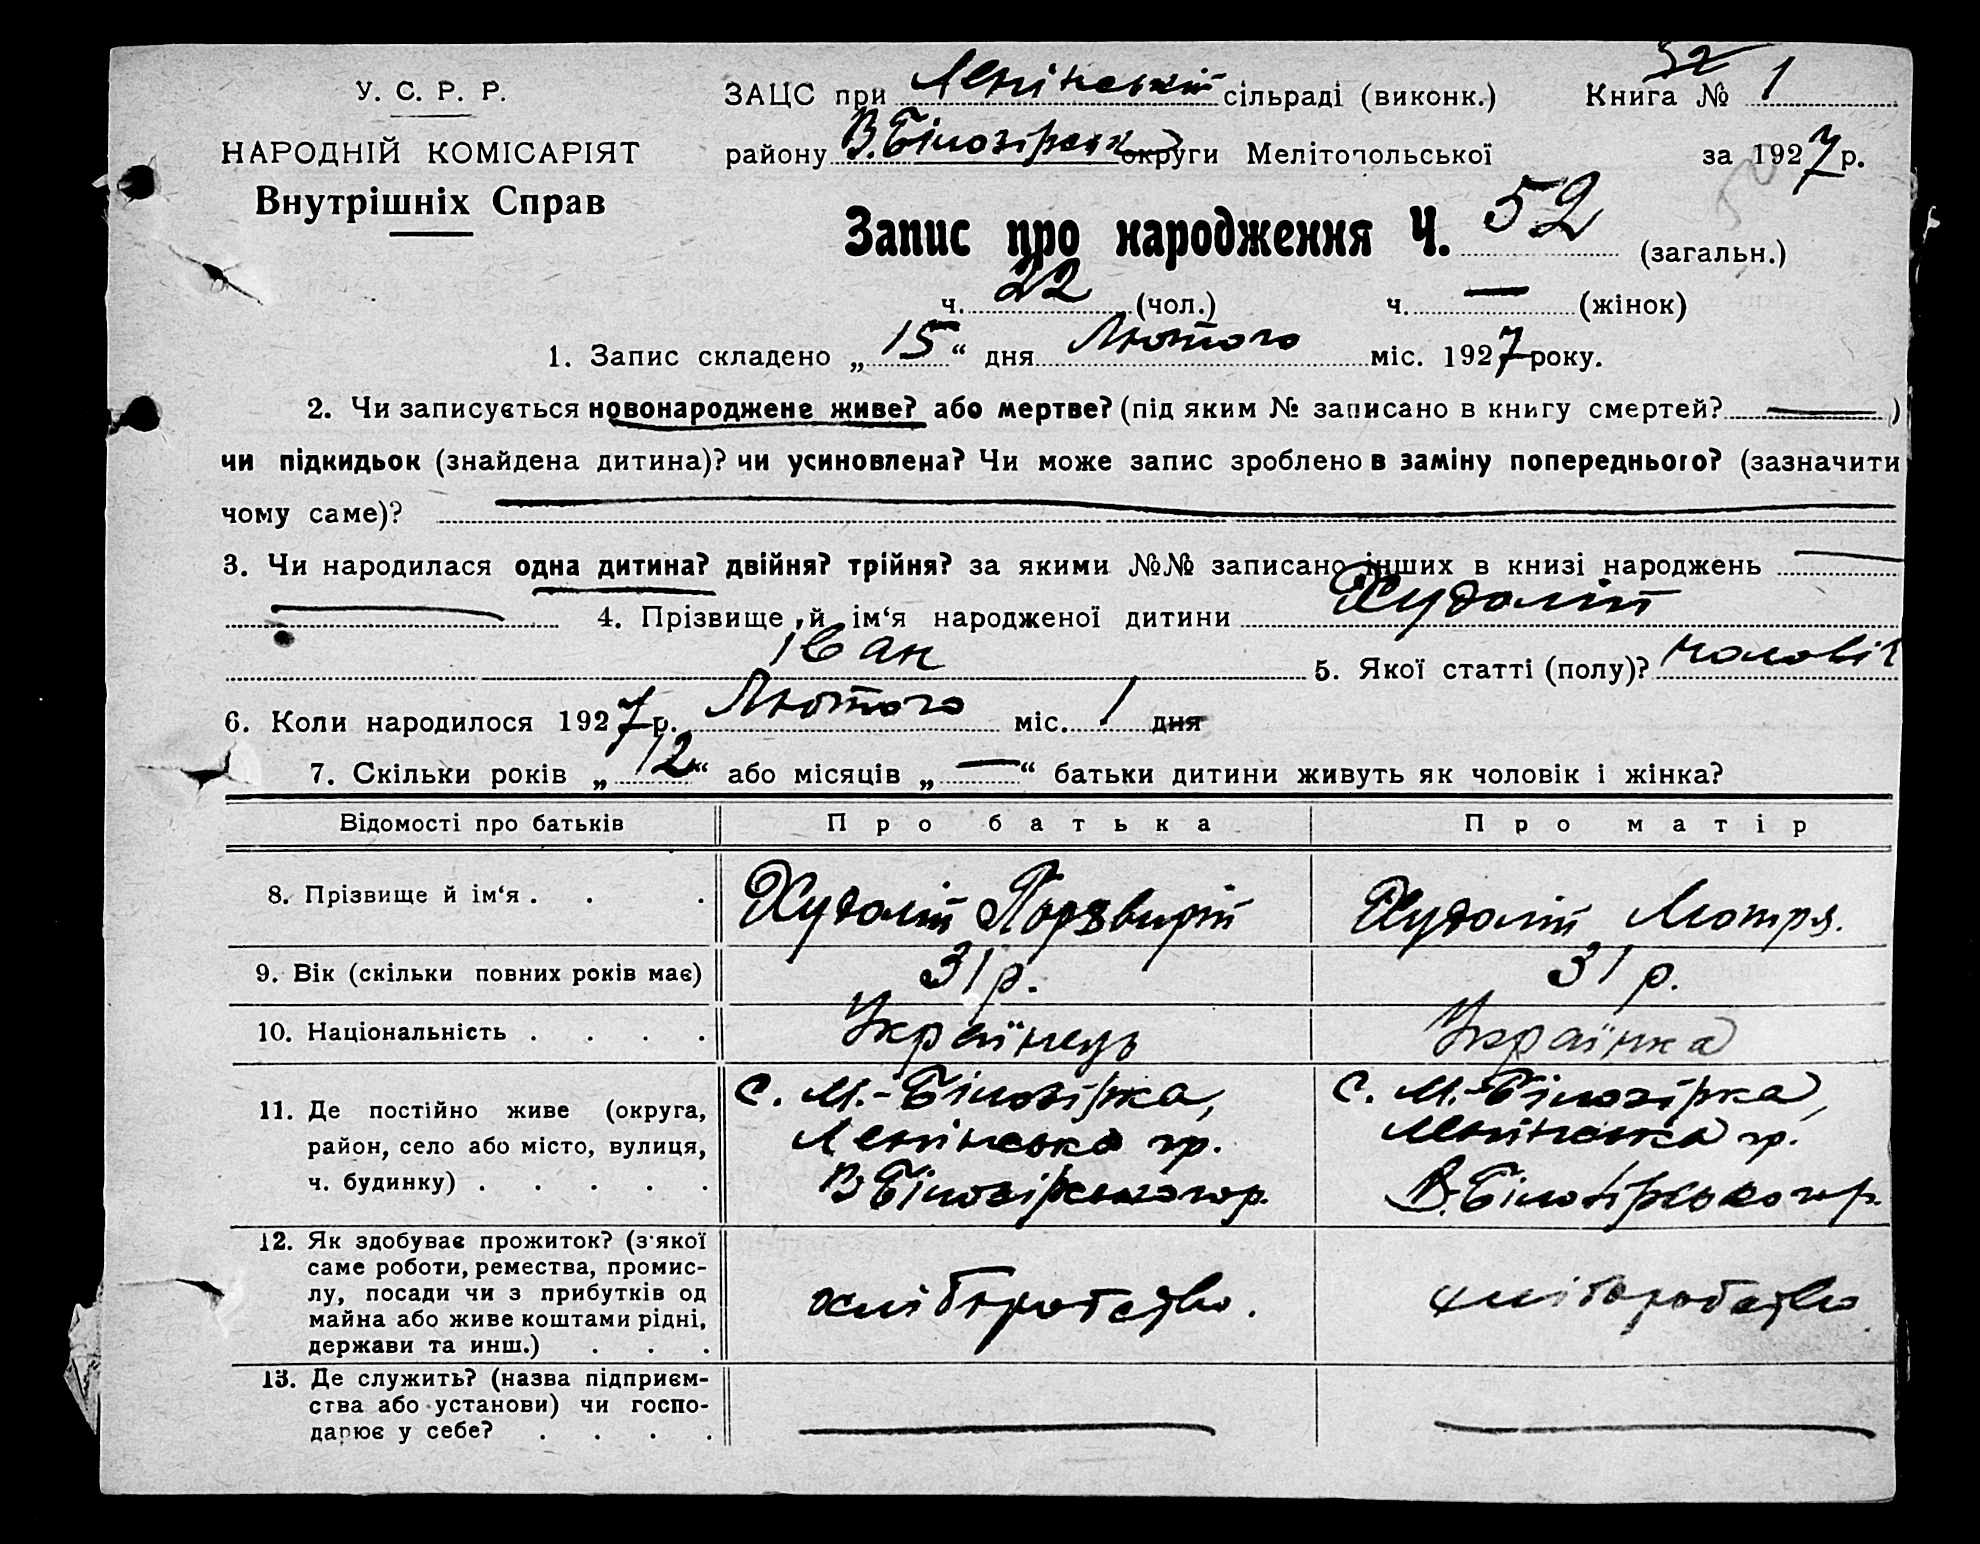 У. С. Р. Р.
НАРОДНІЙ КОМІСАРІЯТ
Внутрішніх Справ
ЗАЦС при Ленінській сільраді (виконк.) Книга № 1
52
району В. Білозірськ округи Мелітопольської за 1927 р.
Запис про народження Ч. 52 (загальн.)
ч. 22 (чол.) ч. — (жінок)
1. Запис складено „ 15 “ дня Лютого міс. 1927 року.
2. Чи записується новонароджене живе? або мертве? (під яким № записано в книгу смертей? — )
чи підкидьок (знайдена дитина)? чи усиновлена? Чи може запис зроблено в заміну попереднього? (зазначити
чому саме)? —
3. Чи народилася одна дитина? двійня? трійня? за якими №№ записано інших в книзі народжень —
— 4. Прізвище й ім‘я народженої дитини Худоліт
Іван 5. Якої статті (полу)? чоловіч
6. Коли народилося 1927 р. Лютого міс. 1 дня
7. Скільки років „ 12 “ або місяців „ — “ батьки дитини живуть як чоловік і жінка?
Відомості про батьків Про батька Про матір
8. Прізвище й ім‘я . . . Худоліт Порфирій Худоліт Мотря.
9. Вік (скільки повних років має) 31 р. 31 р.
10. Національність . . . . Українець Українка
11. Де постійно живе (округа,
район, село або місто, вулиця,
ч. будинку) . . . . .
С. М.-Білозірка,
Ленінська гр.
В Білозірського р.
С. М.-Білозірка,
Ленінська гр.
В. Білозірського р.
12. Як здобуває прожиток? (з'якої
саме роботи, ремества, промис-
лу, посади чи з прибутків од
майна або живе коштами рідні,
держави та инш.) . . .
хліборобство.
хліборобство
13. Де служить? (назва підприєм-
ства або установи) чи госпо-
дарює у себе? . . . .
— —